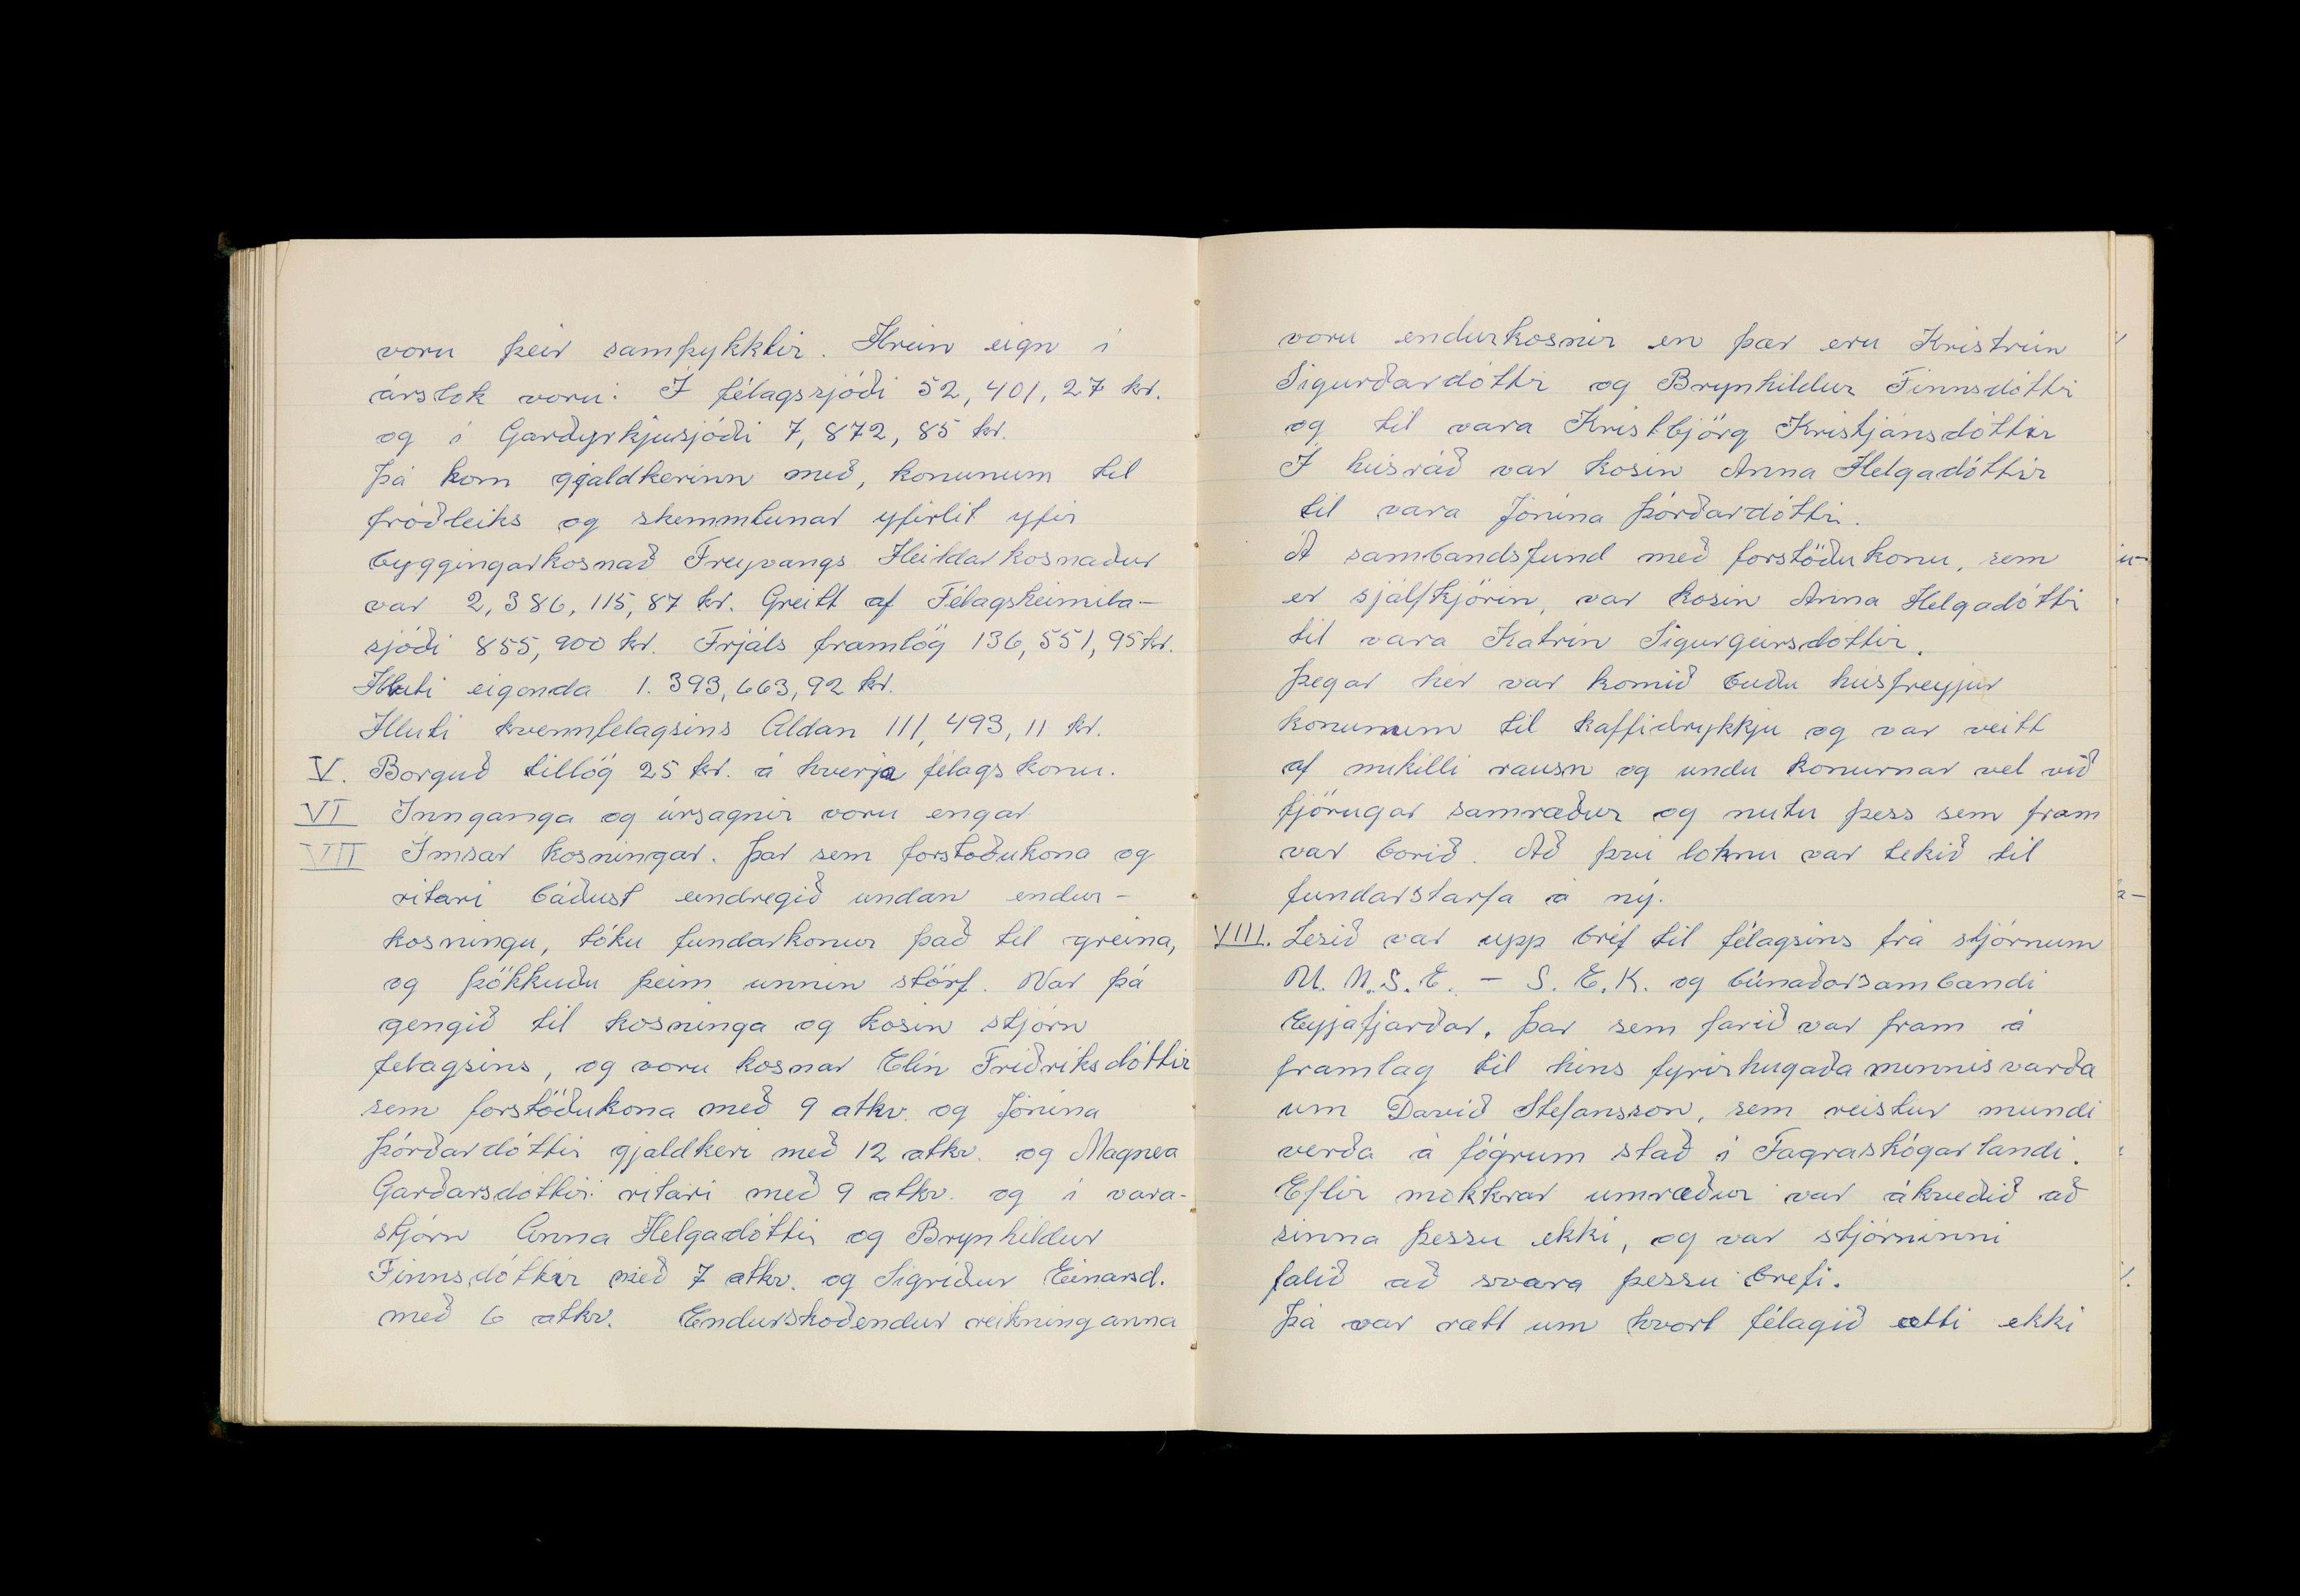 voru þeir samþykktir. Hrein eign í
árslok voru: Í félagssjóði 52,401,27 kr.
og í Garðyrkjusjóði 7,872,85 kr.
Þá kom gjaldkerinn með, konunum til
fróðleiks og skemmtunar yfirlit yfir
byggingarkosnað Freyvangs Heildarkosnaður
var 2,386,115,87 kr. Greitt af Félagsheimila-
sjóði 855,900 kr. Frjáls framlög 136,551,95 kr.
Hluti eigenda 1.393,663,92 kr.
Hluti kvennfelagsins Aldan 111,493,11 kr.
V. Borguð tillög 25 kr. á hverja félagskonu.
VI Innganga og úrsagnir voru engar
VII Ímsar kosningar. Þar sem forstoðukona og
ritari báðust eindregið undan endur-
kosningu, tóku fundarkonur það til greina,
og þökkuðu þeim unnin störf. Var þá
gengið til kosninga og kosin stjórn
felagsins, og voru kosnar Elín Friðriksdóttir
sem forstöðukona með 9 atkv. og Jónína
Þórðardóttir gjaldkeri með 12 atkv. og Magnea
Garðarsdóttir ritari með 9 atkv. og í vara-
stjórn Anna Helgadóttir og Brynhildur
Finnsdóttir með 7 atkv. og Sigríður Einarsd.
með 6 atkv. Endurskoðendur reikninganna
voru endurkosnir en þær eru Kristrún
Sigurðardóttir og Brynhildur Finnsdóttir
og til vara Kristbjörg Kristjánsdóttir
Í húsráð var kosin Anna Helgadóttir
til vara Jónína Þórðardóttir.
Á sambandsfund með forstöðukonu, sem
er sjálfkjörin, var kosin Anna Helgadóttir
til vara Katrín Sigurgeirsdóttir.
Þegar hér var komið buðu húsfreyjur
konunum til kaffidrykkju og var veitt
af mikilli rausn og undu konurnar vel við
fjörugar samræður og nutu þess sem fram
var borið. Að því loknu var tekið til
fundarstarfa á ný.
VIII. Lesið var upp bréf til félagsins frá stjórnum
U.M.S.E. - S.E.K. og búnaðarsambandi
Eyjafjarðar, þar sem farið var fram á
framlag til hins fyrirhugaða minnisvarða
um Davíð Stefansson, sem reistur mundi
verða á fögrum stað í Fagraskógarlandi.
Eftir nokkrar umræður var ákveðið að
sinna þessu ekki, og var stjórninni
falið að svara þessu brefi.
Þá var rætt um hvort félagið ætti ekki